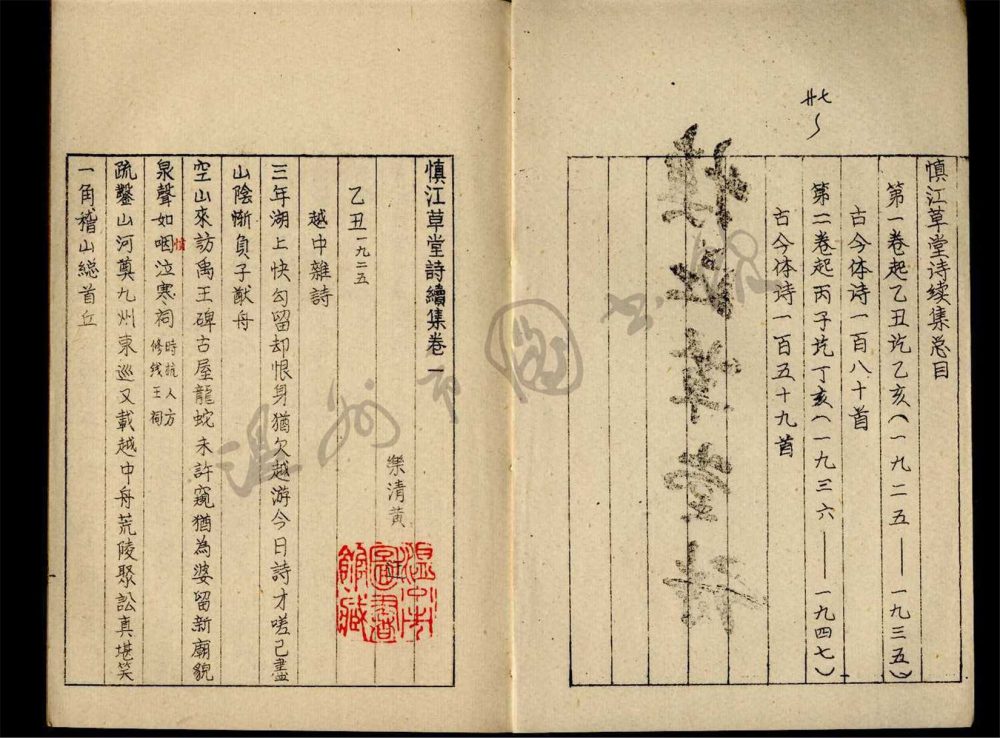 卄七
慎江草堂诗续集总目
第一卷起乙丑讫乙亥(一九二五——一九三五)
古今体诗一百八十首
第二卷起丙子讫丁亥(一九三六——一九四七)
古今体诗一百五十九首
慎江草堂詩續集卷一
樂清黄
乙丑一九二五
越中雜詩
三年湖上快勾留却恨身猶欠越游今日詩才嗟已盡
山陰慚負子猷舟
空山來訪禹王碑古屋龍蛇未許窺猶為婆留新廟貌
泉聲如咽泣寒祠時杭人方修钱王祠
憤
疏鑿山河奠九州東巡又載越中舟荒陵聚訟真堪笑
一角稽山總首丘
温州市圖書館藏
温州市圖书馆